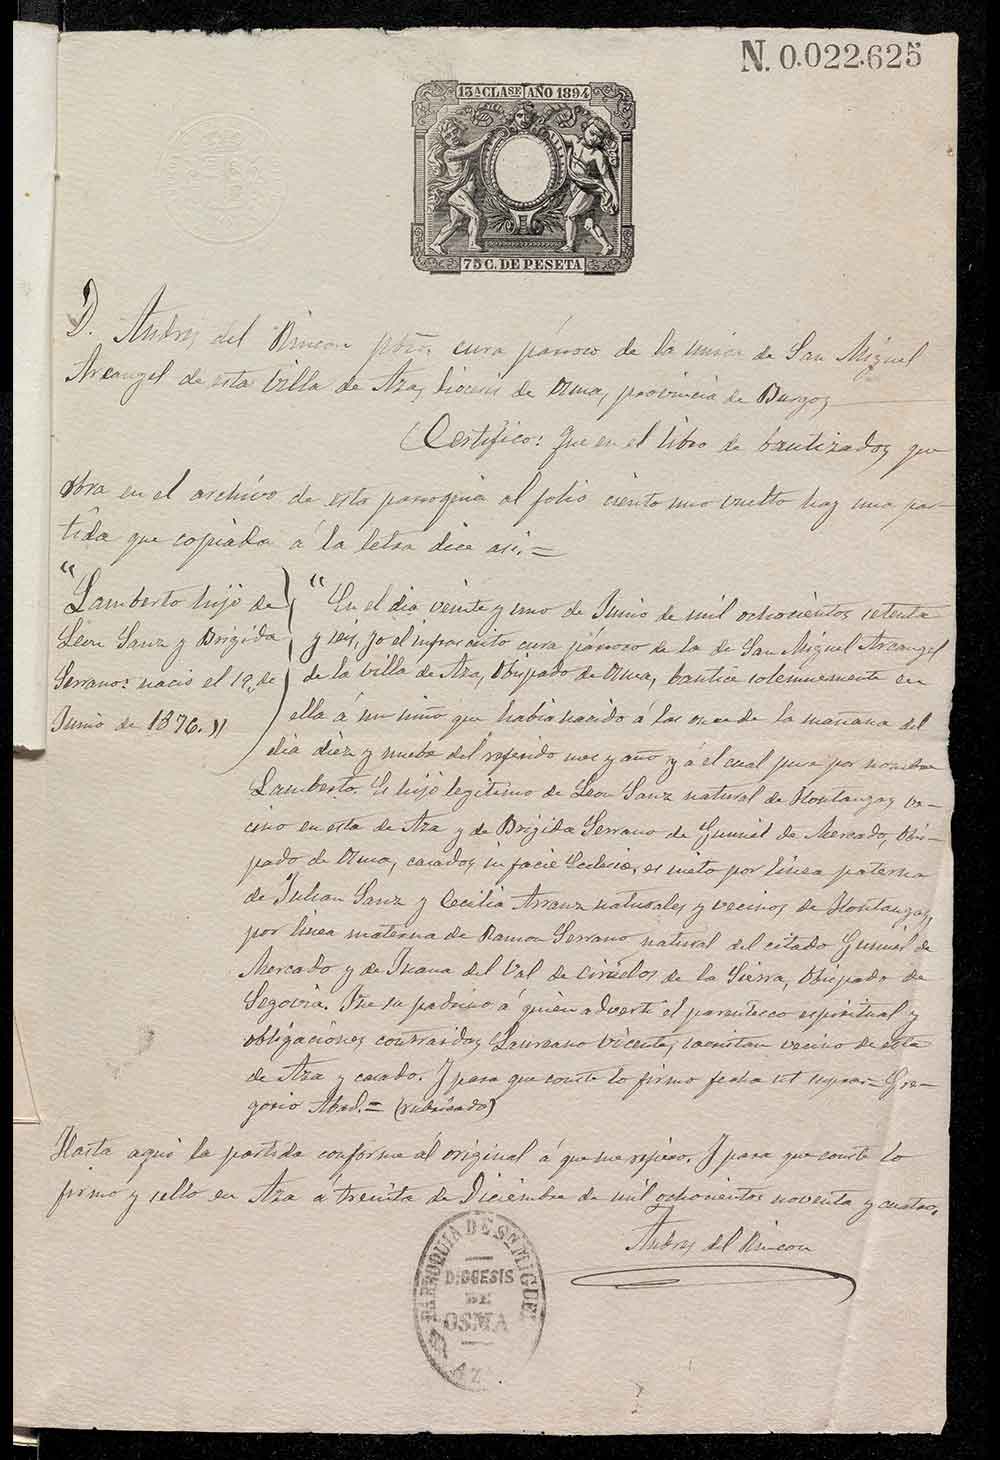 N. 0.022.625
13ª CLASE AÑO 1894
75 C. DE PESETA
D. Andres del Rincon pbro. cura párroco de la única de San Miguel
Arcangel de esta Villa de Aza, Diócesis de Osma, provincia de Burgos,
Certifico: Que en el libro de bautizados que
obra en el archivo de esta parroquia al folio ciento uno vuelto hay una par-
tida que copiada á la letra dice así. =
"Lamberto hijo de
León Sanz y Brigida
Serrano: nació el 19 de
Junio de 1876."
"En el dia veinte y uno de Junio de mil ochocientos setenta
y seis, yo el infrascrito cura párroco de la de San Miguel Arcangel
de la villa de Aza, Obispado de Osma, bautice solemnemente en
ella á un niño que habia nacido á las once de la mañana del
dia diez y nueve del referido mes y año y á el cual puse por nombre
Lamberto. Es hijo legítimo de Leon Sanz natural de Hontangas ve-
cino en esta de Aza y de Brígida Serrano de Gumiel de Mercado, Obis-
pado de Osma, casados in facie Eclesie, es nieto por línea paterna
de Julian Sanz y Cecilia Arranz naturales y vecinos de Hontangas,
por linea materna de Ramon Serrano natural del citado Gumiel de
Mercado y de Juana del Val de Ciruelos de la Sierra, Obispado de
Segovia. Fue su padrino á quien advertí el parentesco espiritual y
obligaciones contraidas Laureano Vicente, sacristan vecino de esta
de Aza y casado. Y para que conste lo firmo fecha ut supra = Gre-
gorio Abad. = (rubricado)
Hasta aquí la partida conforme al original á que me refiero. Y para que conste lo
firmo y sello en Aza á treinta de Diciembre de mil ochocientos noventa y cuatro.
Andres del Rincon
PARROQUIA DE Sn. MIGUEL
DIOCESIS
DE
OSMA
AZA